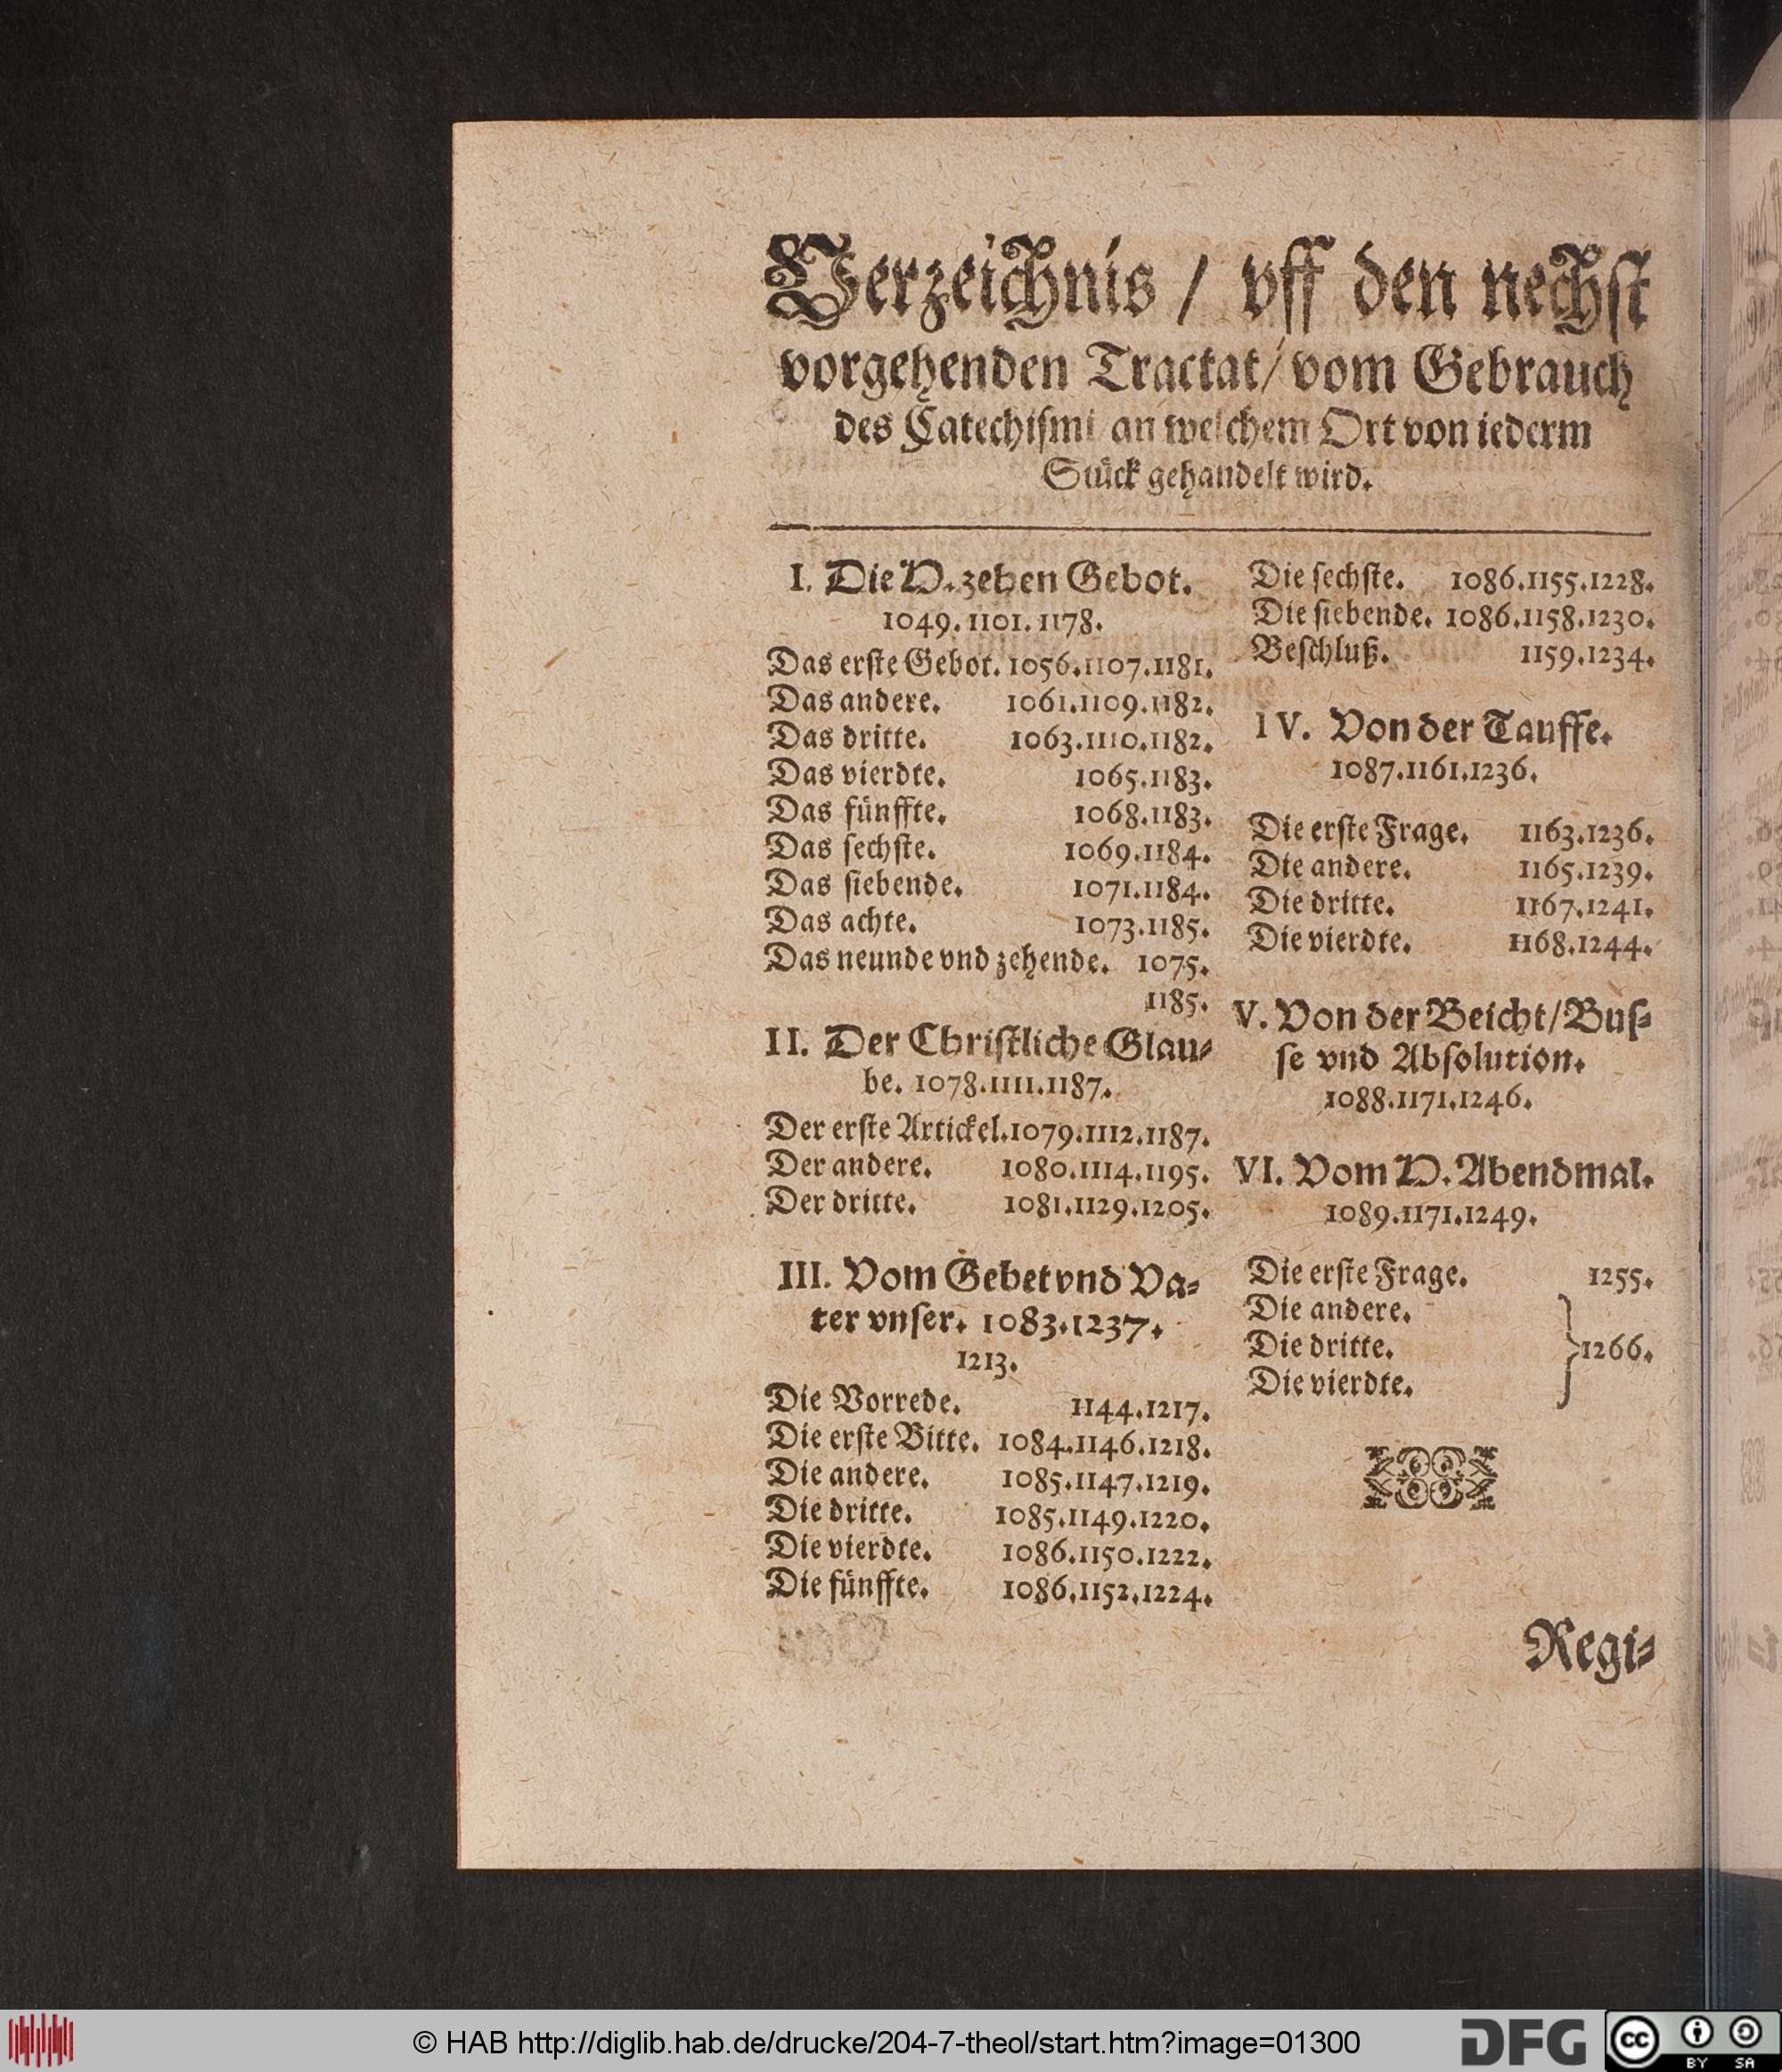 Verzeichnis / vff den nechst
vorgehenden Tractat / vom Gebrauch
des Catechiſmi an welchem Ort von iederm
Stück gehandelt wird.
I. Die H. zehen Gebot.
1049. 1101. 1178.
Das erſte Gebot. 1056. 1107. 1181.
Das andere. 1061. 1109. 1182.
Das dritte. 1063. 1110. 1182.
Das vierdte. 1065. 1183.
Das fünffte. 1068. 1183.
Das ſechſte. 1069. 1184.
Das ſiebende. 1071. 1184.
Das achte. 1073. 1185.
Das neunde vnd zehende. 1075.
1185.
II. Der Chriſtliche Glau-
be. 1078. 1111. 1187.
Der erſte Artickel. 1079. 1112. 1187.
Der andere. 1080. 1114. 1195.
Der dritte. 1081. 1129. 1205.
III. Vom Gebet vnd Va-
ter vnſer. 1083. 1237.
1213.
Die Vorrede. 1144. 1217.
Die erſte Bitte. 1084. 1146. 1218.
Die andere. 1085. 1147. 1219.
Die dritte. 1085. 1149. 1220.
Die vierdte. 1086. 1150. 1222.
Die fünffte. 1086. 1152. 1224.
Die ſechſte. 1086. 1155. 1228.
Die ſiebende. 1086. 1158. 1230.
Beſchluß. 1159. 1234.
IV. Von der Tauffe.
1087. 1161. 1236.
Die erſte Frage. 1163. 1236.
Die andere. 1165. 1239.
Die dritte. 1167. 1241.
Die vierdte. 1168. 1244.
V. Von der Beicht / Buſ-
ſe vnd Abſolution.
1088. 1171. 1246.
VI. Vom H. Abendmal.
1089. 1171. 1249.
Die erſte Frage. 1255.
Die andere.
Die dritte. } 1266.
Die vierdte.
Regi-
© HAB http://diglib.hab.de/drucke/204-7-theol/start.htm?image=01300
DFG
cc BY SA